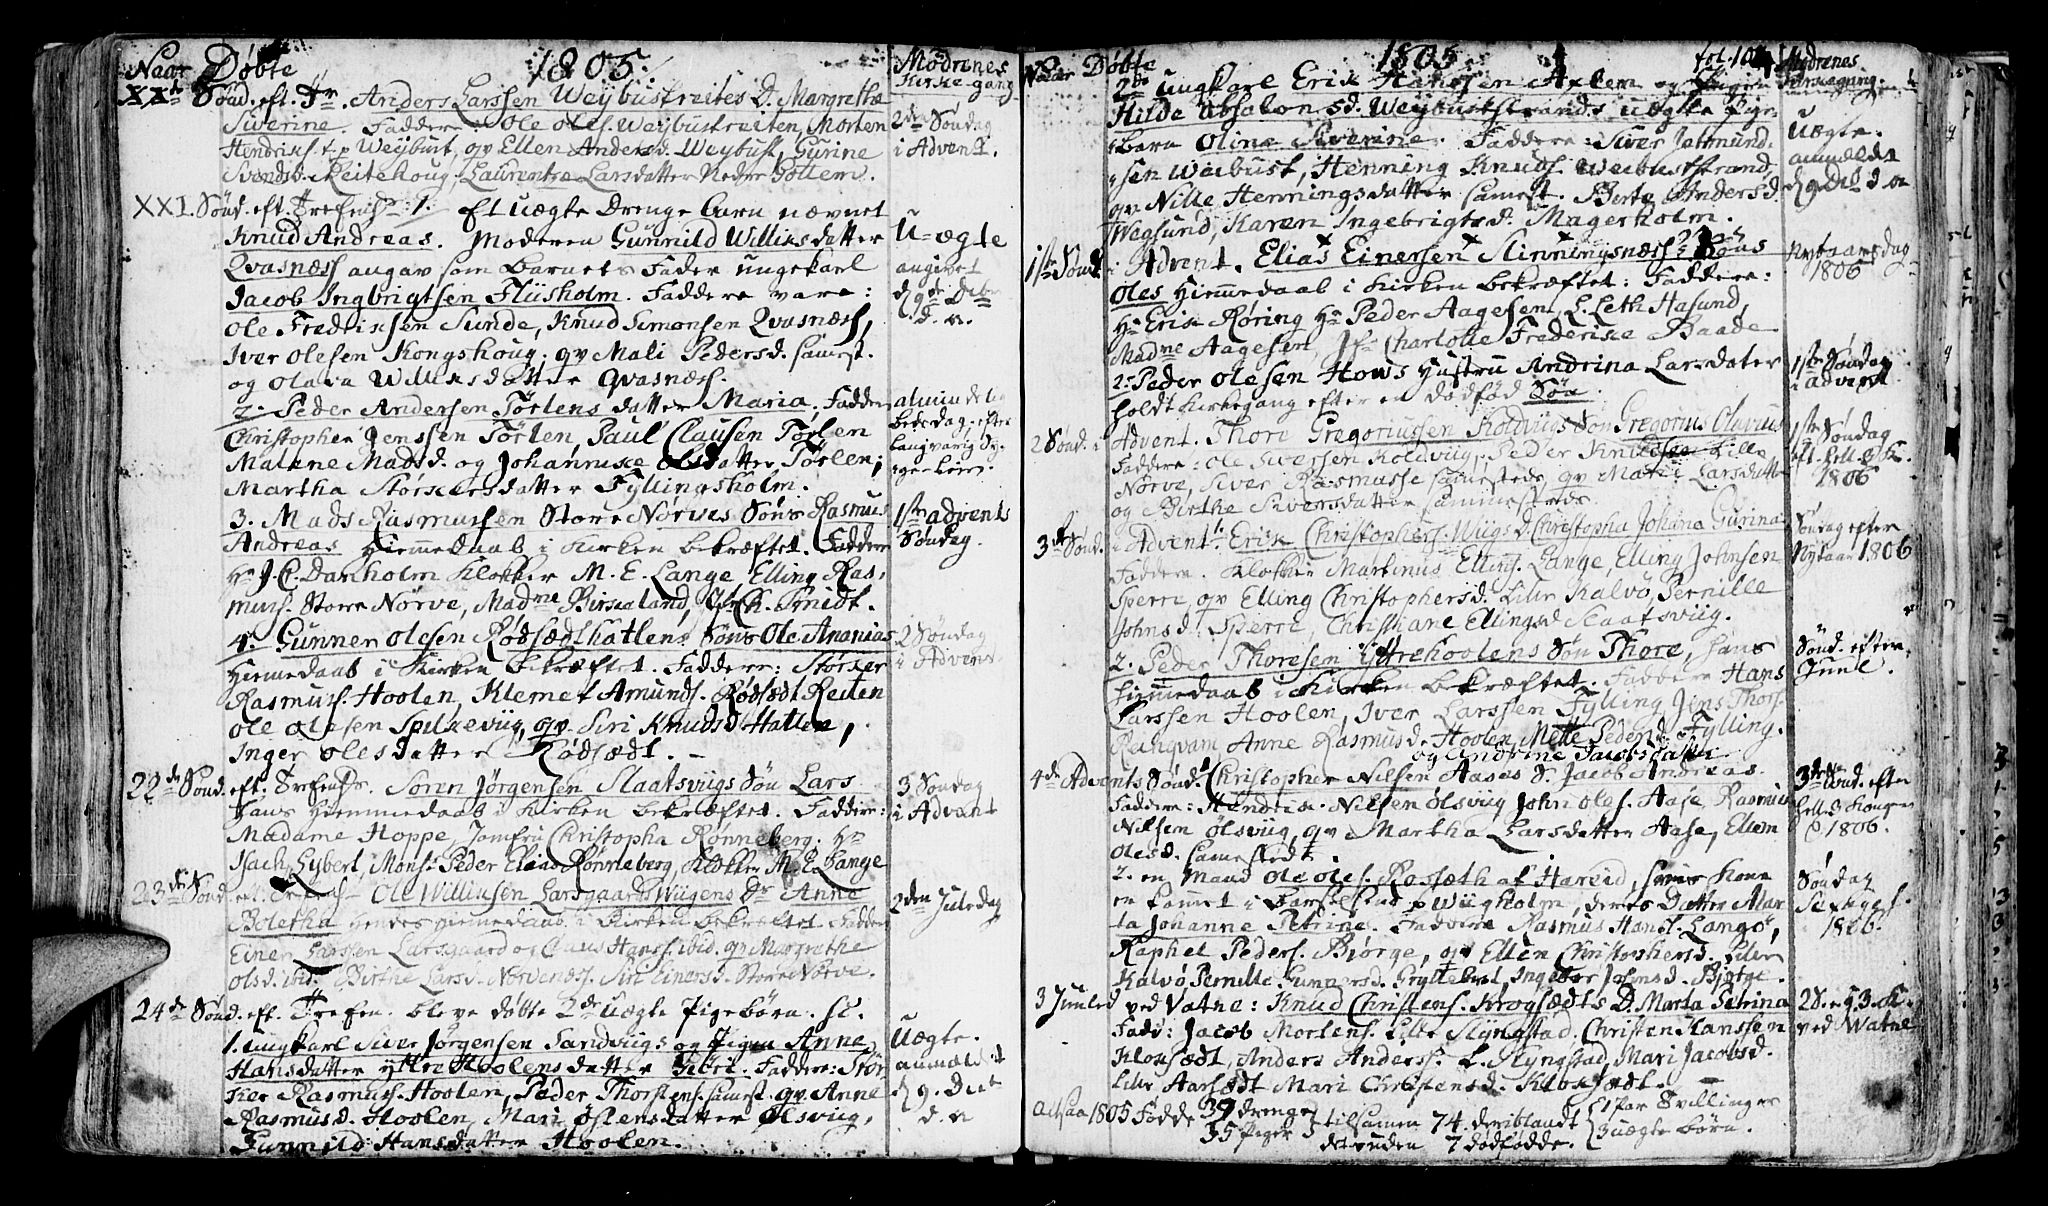 Naar Døbte 1805. Mødrenes
Kirkegang
XXde Sønd. eft. Tr. Anders Larssen Weybustreites D. Margrethe
Siverine. Faddere: Ole Oles. Weybustreiten, Morten
Hendriks. Weybust, qv Ellen Andersd. Weybust, Gurine
Svendsd. Reitehoug, Laurentze Larsdatter Neder Tollem.
2den Søndag
i Advent.
XXI. Sønd. eft. Trefens. 1. Et uægte Drenge barn nævnet
Knud Andreas. Moderen Gunnild Williksdatter
Qvasnæss angav som barnets Fader ungkarl
Jacob Ingbrigtsen Flüsholm. Faddere vare:
Ole Fredriksen Sunde, Knud Simonsen Qvasnæss,
Iver Olesen Kongshoug. qv Mali Pedersd. samest.
og Olava Williksdatter Qvasnæss.
U-ægte
angivet
d. 9de Dbr
d. a.
2. Peder Andersen Torlens datter Maria. Faddere
Christopher Jenssen Torlen, Paul Clausen Torlen
Malene Madsd. og Johannicke Olsdatter Torlen;
Martha Størkersdatter Fyllingsholm.
almindelig
Bededag efter
langvarig Sy-
3. Mads Rasmussen Store Nørves Søn Rasmus
Andreas Hiemmedaab i Kirken bekræftet. Faddere
Hr J. C. Danholm Klokker M. E. Lange, Elling Ras-
mus. Store Nørve, Madme Birkeland, Ch. Smidt.
1ste Advents
Søndag.
4. Gunner Olesen Rødsædthatlens Søn Ole Ananias
Hiemedaab i Kirken bekræftet. Faddere: Størker
Rasmus. Hoolen, Klemet Amunds. Rødsædt Reiten
Ole Olesen Spilkeviig, qv Siri Knudsd. Hatlen,
Inger Olesdatter Rødsædt.
2 Søndag
i Advent.
22de Sønd. eft. Trefens. Søren Jörgensen Slaatsviigs Søn Lars
Hans Hiemmedaab i Kirken bekræftet. Faddere:
Madame Hoppe, Jomfru Christopha Rønneberg. Hr
Isach Lybert, Mons. Peder Elias Rønneberg, Klokker M. E. Lange
3 Søndag
i Advent
23de Sønd. eft. Trefens. Ole Williksen Larsgaards Wiigens Dr Anne
Boletha hendes hiemmedaab i Kirken bekræftet Faddere
Einer Larssen Larsgaard og Claus Hanss. ibid. qv Margrethe
Olsd. ibid. Birthe Larsd. Nørvenæss. Siri Einersd. Store Nørve.
2den Juledag
24de Sønd. eft. Trefen. bleve døbte 2de uægte Pigebørn. sc.
1. ungkarl Siver Jørgensen Sandviigs og Pigen Anne
Hansdatter yttre Hoolens datter Siri. Faddere: Stør
ker Rasmus. Hoolen, Peder Thorstens. samest. qv Anne
Rasmusd. Hoolen, Mari Østensdatter Ølsviig,
Gunnild Hansdatter Hoolen.
Uægte.
anmældt
d. 9. Dec
d. a
Naar Døbte 1805 fol. 104 Mødrenes
Kirkegang.
2de ungkarl Erik Hansen Axlem og Pigen
Hilde Absalonsd. Weybuststrands uægte Pige-
barn Oline Siverine. Faddere: Siver Jetmund-
sen Weibust, Henning Knuds. Weibuststrand,
qv Nille Henningsdatter samest. Berte Andersd.
Wegsund, Karen Ingebrigtsd. Magerholm.
Uægte.
anmeldt
d. 9 Dec d a
1ste Sønd. i Advent. Elias Einersen Slinningsnæss Søns
Oles hiemmedaab i Kirken bekræftet: Faddere:
Hr Erik Røring Hr Peder Aagesen, L. Leth Hasund,
Madme Aagesen Jfr Charlotte Frederike Baade
Nytaarsdag
1806
2. Peder Olesen Hows Hustru Andrina Larsdater
holdt Kirkegang efter en dødfød Søn
1ste Søndag
i advent
2 Sønd. i Advent. Thore Gregoriussen Koldviigs Søn Gregorius Olavius
Faddere: Ole Siversen Koldviig, Peder Knudsen Lille
Nørve, Siver Rasmusse samestede qv Marte Larsdatter
og Birthe Siversdatter sammestede.
1ste Søndag
eft. hell. 3 K.
1806
3de Sønd. i Advent. Erik Christophers. Wiigs D. Christopha Johana Gurina
Faddere. Klokker Martinus Ellings. Lange, Elling Johnsen
Sperre, qv Elling Christophersd. Lille Kalvø, Pernille
Johnsd. Sperre, Christiane Ellingsd. Slaatsviig.
Søndag efter
Nytaar 1806
2. Peder Thoresen Yttrehoolens Søn Thore, hans
Hiemmedaab i Kirken bekræftet. Faddere Hans
Larssen Hoolen, Iver Larssen Fylling Jens Thors.
Ranqvam Anne Rasmusd. Hoolen Mette Pedersd. Fylling.
og Andrine Jacobsdatter
Sønd. efter
Juul.
4de Advents Sønd. Christopher Nilsen Aases S. Jacob Andreas.
Faddere: Hendrik Nilsen Ølsviig John Oles. Aase, Rasmus
Nilsen Ølsviig, qv Martha Larsdatter Aase, Ellen
Olesd. samestede.
3de Sønd. efter
hell. 3 Konger
1806.
2. en Mand Ole Oles. Rossæth af Hareid, hvis Kone
en kommet i Barselseng p. Wiigholm, deres Datter Mar-
ta Johanne Petrine. Faddere Rasmus Hans. Langø,
Raphel Peders. Bjørge, qv Ellen Christophersd. Lille
Kalvø Pernille Gunnersd. Gryttebust, Ingebor Johnsd. Bjørge.
Søndag
Septuages.
1806.
3 Juuled. ved Vatne: Knud Christens. Krogsædts D. Marta Petrina
Fadd: Jacob Mortens. Lille Slyngstad. Christen Hanssen
Kloksædt, Anders Anderss. L. Slyngstad, Mari Jacobsd.
Lille Aarsædt Mari Christensd. Kloksædt.
2 S. e. h. 3. K.
ved Watne
Altsaa 1805 Fødde 39 drenge
35 Piger tilsamen 74. deriblandt 1 Par Tvillinger
3 uægte børn.
desuden 7 dødfødde.